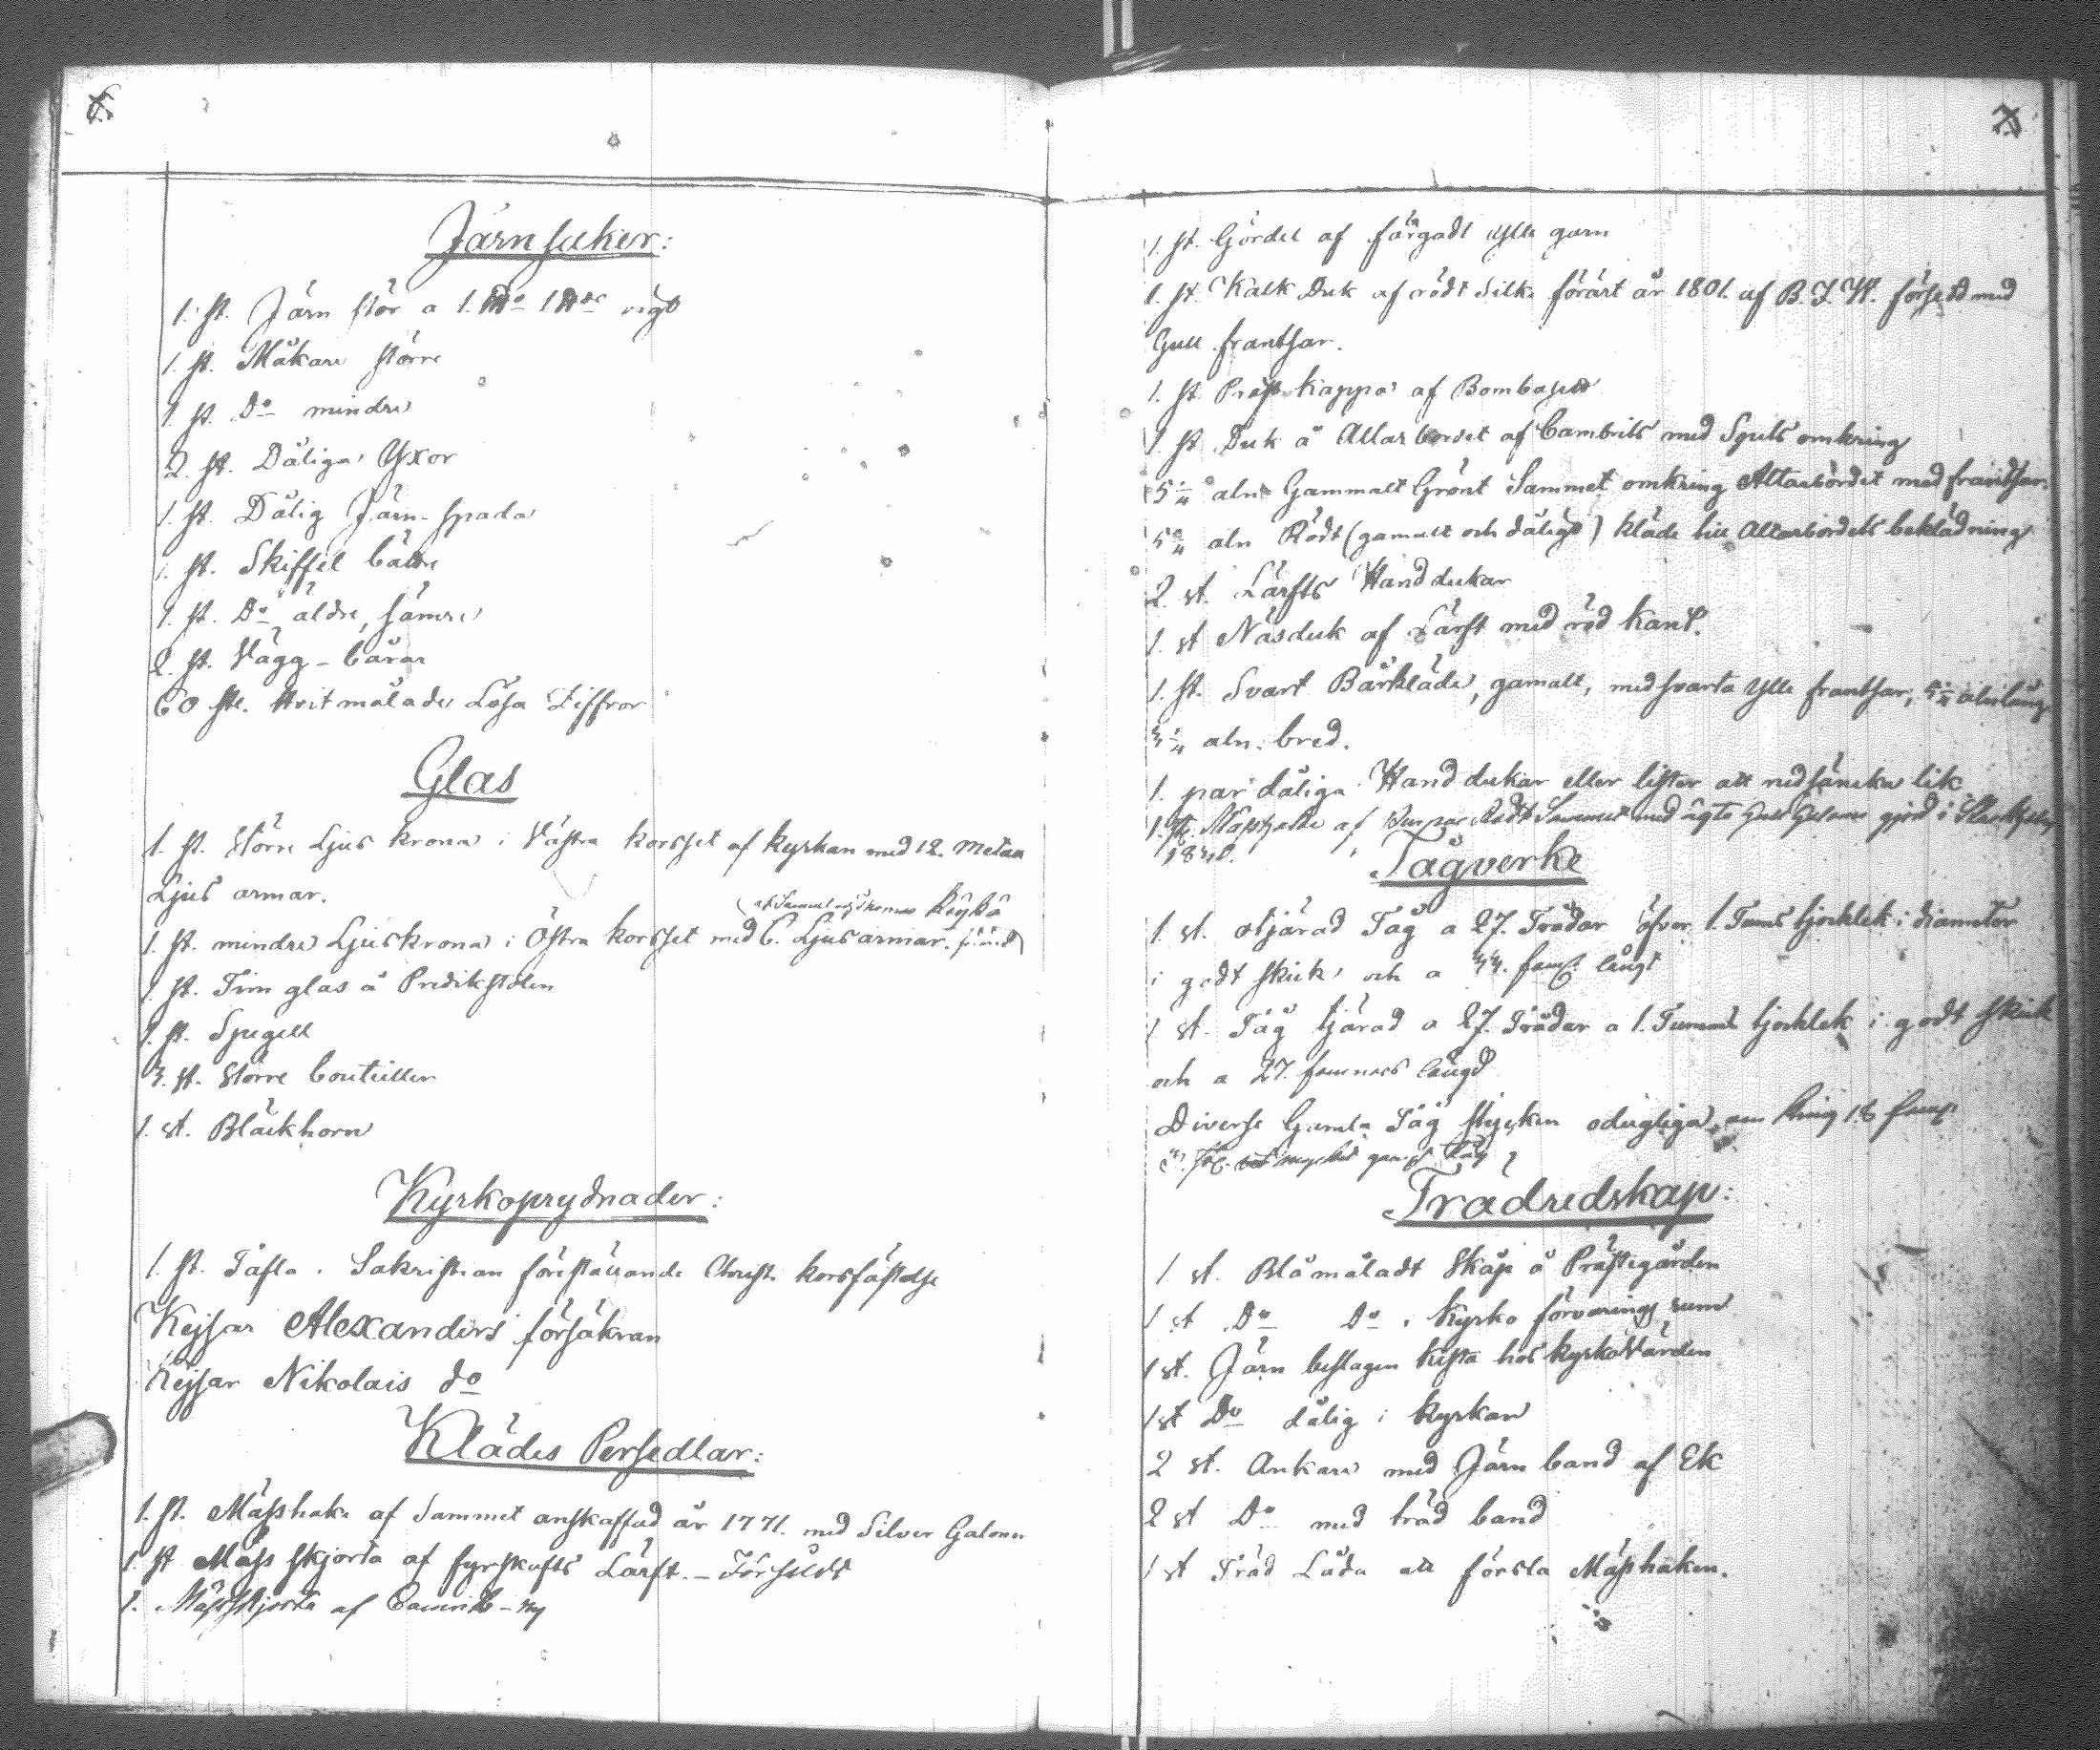 6.
Järnsaker:
1. st. Järn stör a 1. vigt
1. st. Måkare större
1 st. Do mindre
2. st. Dåliga Yxor
1. st. Dålig Järn-spada
1. st. Skiffel bättre
1. st. Do äldre, sämre
2. st. Vägg-bårar
60 ste. Hvitmålade Lösa Ziffror
Glas
1. st. Större Ljus krona i Västra korsset af kyrkan med 12. metall
Ljus armar.
af Samuel Thomas
1. st. mindre Ljuskrona i Östra korsset med 6. Ljusarmar.
1 st. Tim glas å Predikstolen
1. st. Spegell
3. st. Större bouteiller
1. st. Bläckhorn
Kyrkoprydnader:
1. st. Tafla i Sakristian föreställande Christi korsfästelse
Kejsar Alexanders försäkran
Kejsar Nikolais do
Klädes Persedlar:
1. st. Mässhake af Sammet anskaffad år 1771. med Silver Galoner
1. st Mäss skjorta af fyrskafts Lärft. - Försåldt
1. Mässkjorta af - ny
7.
1. st. Gördel af färgadt ylle garn
1. st. Kalk Duk af rödt Silke förärt år 1801. af B. I. W. försedd med
Gull frantsar.
1. st. Präst kappa af Bombasin
1 st Duk å Altarbordet af Cambrits med Spets omkring
5 1/4 aln Gammalt Grönt Sammet omkring Altarbordet med frantsar.
5 3/4 aln Rödt (gamalt och dåligt) kläde till Altarbordets beklädning
2. st. Lärfts Handdukar
1. st Näsduk af Lärft med röd kant.
1. st. Svart Bårkläde, gamalt, med svarta ylle frantsar, 5 1/4 aln lång
3 1/4 aln. bred.
1. par dåliga Handdukar eller lister att nedsäncka lik
1. st. Mässhake af Rödt Sammet med ägta Guld Galoner gjord i
Tågverke
1. st. otjärad Tåg a 27. Trådar öfver 1 Tums tjocklek i diameter
i godt skick och a 44. famn. långt
1 st. Tåg tjärad a 27. Trådar a 1. Tums tjocklek i godt skick
och a 27. famnars längd
Diverse Gamla Tåg stycken odugliga, 18 famn
Trädredskap:
1 st. Blåmåladt Skåp å Prästegården
1 st Do Do i Kyrko förvarings rum
1 st. Järn beslagen kista hos kyrkoVärden
1 st Do dålig i kyrkan
2 st. Ankare med Järn band af Ek
2 st Do med träd band
1 st Träd Låda att förvara Mässhaken.